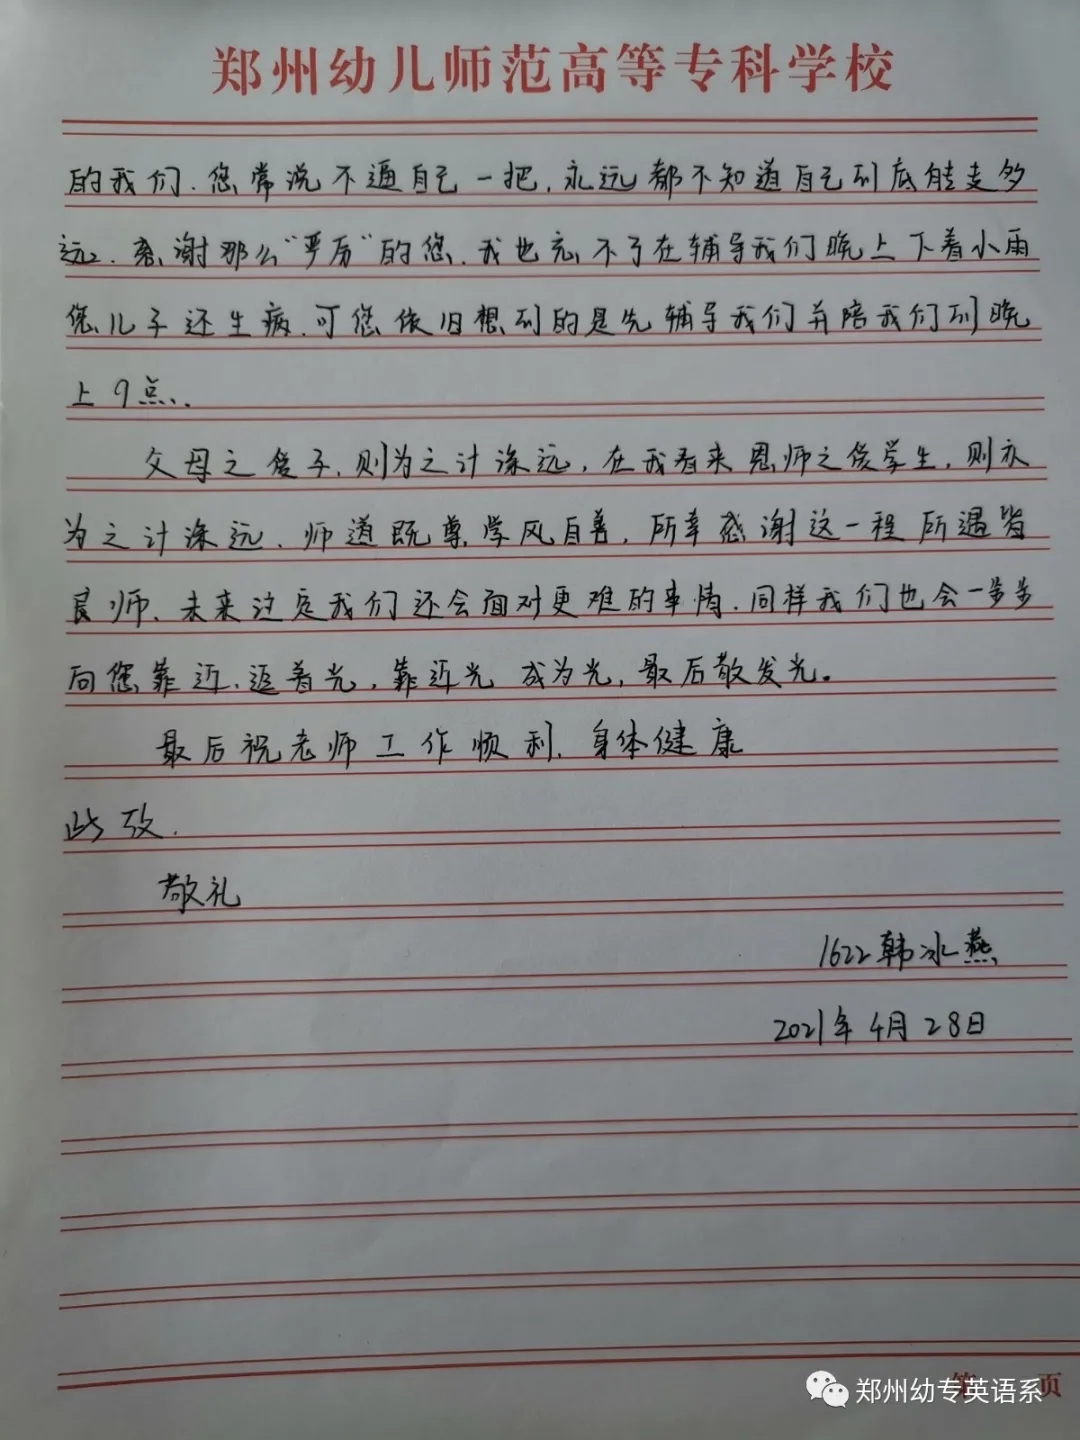 郑州幼儿师范高等专科学校
的我们.您常说不逼自己一把,永远都不知道自己到底能走多
远.感谢那么“严厉”的您.我也忘不了在辅导我们晚上下着小雨
您儿子还生病.可您依旧想到的是先辅导我们并陪我们到晚
上9点..
父母之爱子,则为之计深远,在我看来恩师之爱学生,则亦
为之计深远.师道既尊,学风自善,所幸感谢这一程所遇皆
良师.未来注定我们还会面对更难的事情.同样我们也会一步步
向您靠近.追着光,靠近光 成为光,最后散发光。
最后祝老师工作顺利.身体健康
此致.
敬礼
1622韩冰燕
2021年4月28日
第 页
郑州幼专英语系